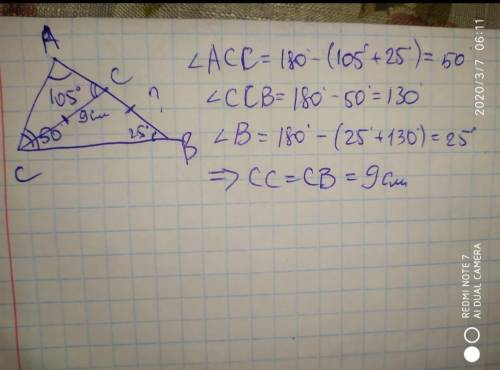 A
C
105°
?
9см
50°
25°
B
C
∠ACC = 180° - (105° + 25°) = 50°
∠CCB = 180° - 50° = 130°
∠B = 180° - (25° + 130°) = 25°
⇒ CC = CB = 9см
2020/3/7 06:11
REDMI NOTE 7
AI DUAL CAMERA